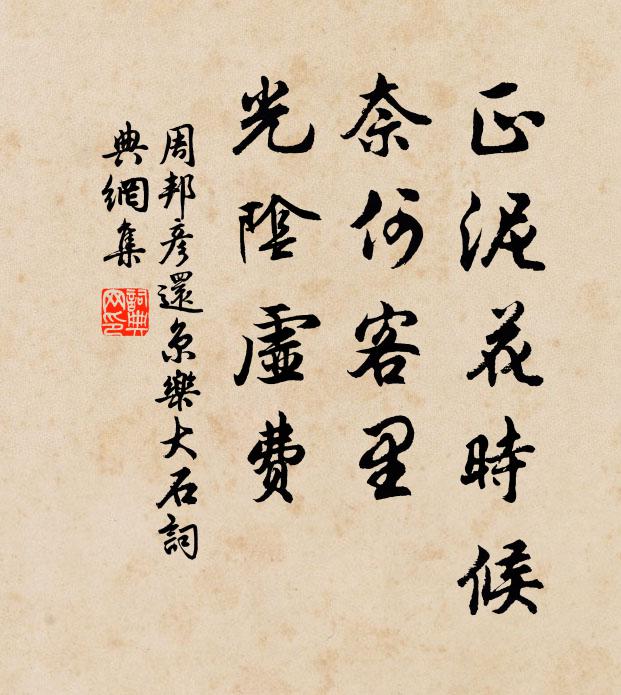 正泥花時候
奈何客里
光陰虛費
周邦彥還京樂大石詞
典網集
詞典網印